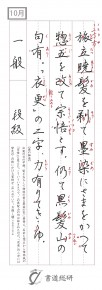 10月
旅立暁髪を剃て墨染にさまをかへて
惣五を改て宗悟とす。仍て黒髪山の
句有。衣更の二字力有てきこゆ。
一般　後級
書道総研